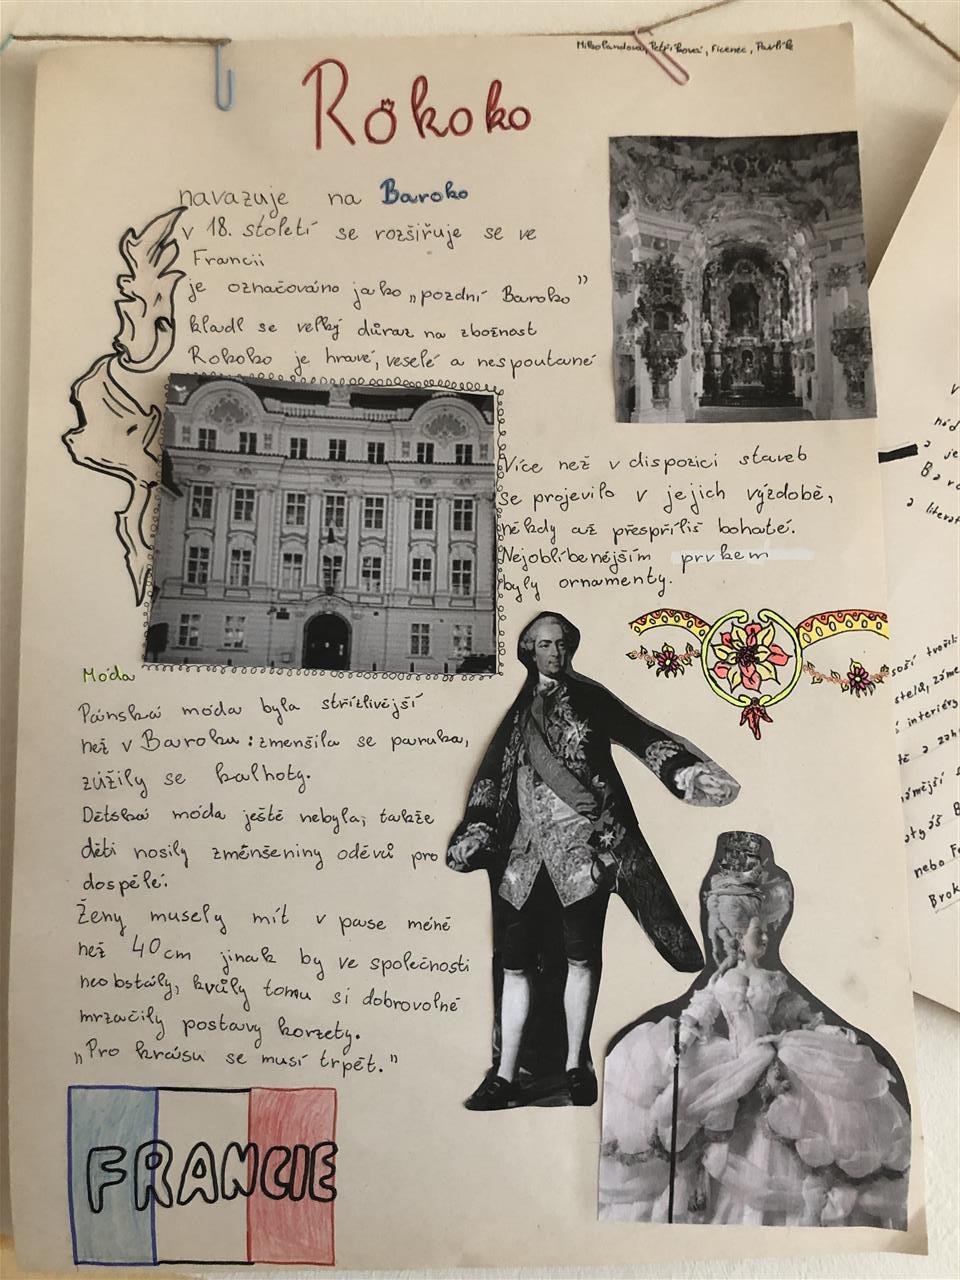 Mikolandová, Petříková, Ficenec, Pavlík
Rokoko
navazuje na Baroko
v 18. století se rozšiřuje se ve
Francii
je označováno jako „pozdní Baroko"
kladl se velký důraz na zbožnost
Rokoko je hravé, veselé a nespoutané
Více než v dispozici staveb
se projevilo v jejich výzdobě,
někdy až přespříliš bohaté.
Nejoblíbenějším prvkem
byly ornamenty.
Móda
Pánská móda byla střízlivější
než v Baroku: zmenšila se paruka,
zúžily se kalhoty.
Dětská móda ještě nebyla, takže
děti nosily zmenšeniny oděvů pro
dospělé.
Ženy musely mít v pase méně
než 40cm jinak by ve společnosti
neobstály, kvůly tomu si dobrovolně
mrzačily postavy korzety.
„Pro krásu se musí trpět."
FRANCIE